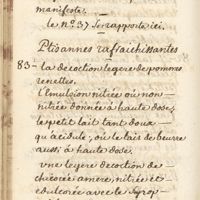 manifeste.
le n.º 37 se rapporte ici.
Ptisannes rafraichissantes
83 - la decoction legere de pommes
renettes.
l'Emulsion nitrée où non
nitrée donnée à haute dose,
le petit lait tant doux
qu'acidule; où le lait de beurre
aussi à haute dose.
une legere decoction de
chicorée amere, nitrée et
edulcorée avec le syrop